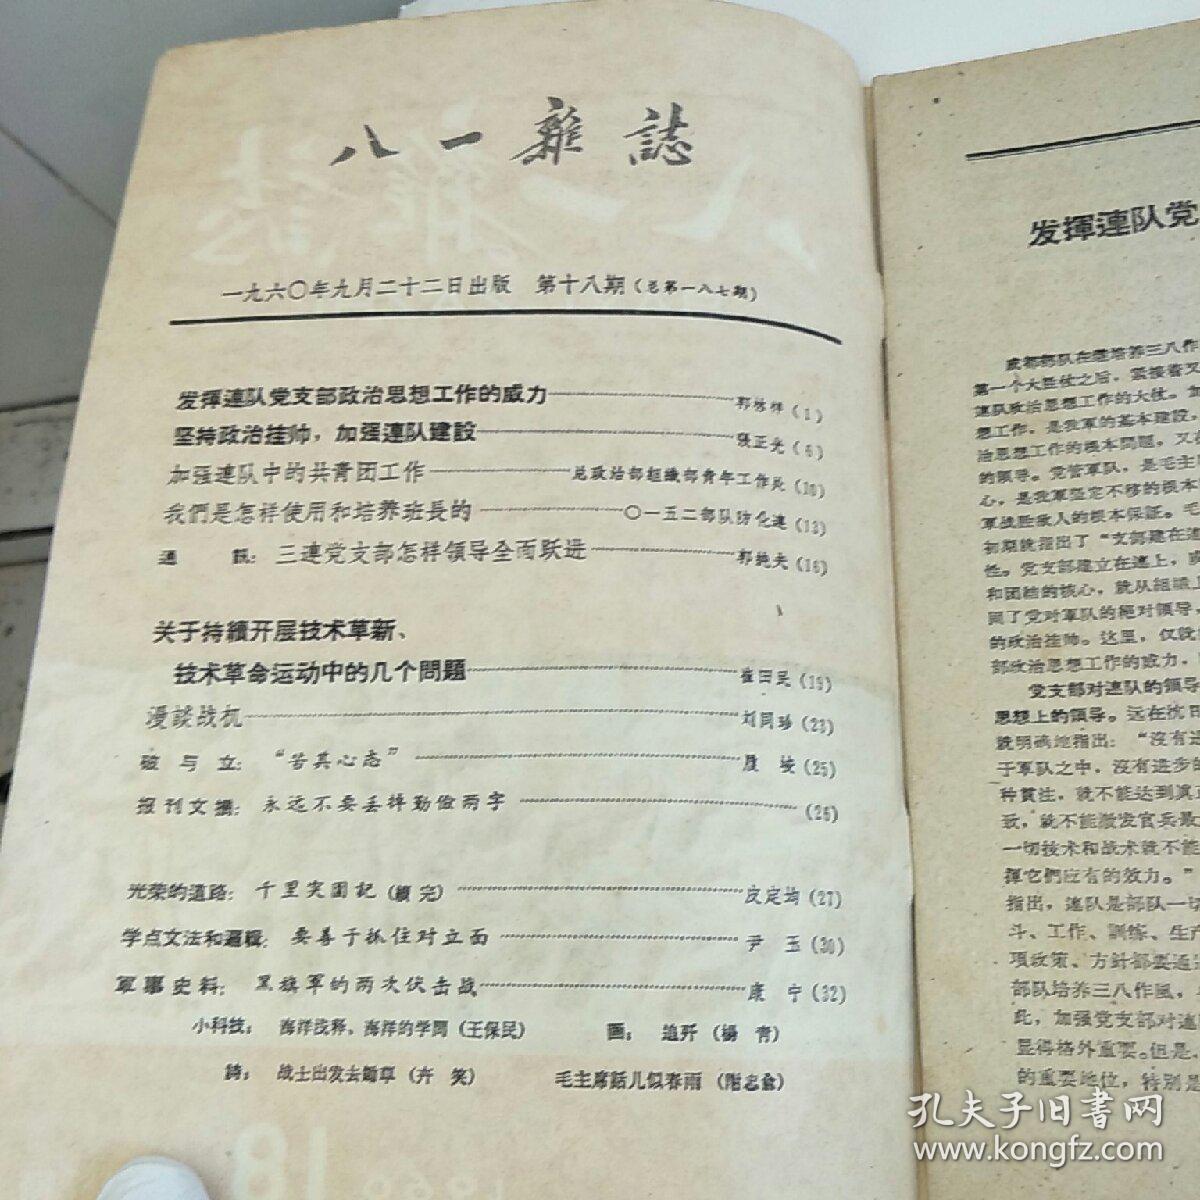 八一雜誌
一九六〇年九月二十二日出版 第十八期(总第一八七期)
发揮連队党支部政治思想工作的威力 (1)
坚持政治挂帅，加强連队建設 張正光(6)
加强連队中的共青团工作 总政治部組織部青年工作处(10)
我們是怎样使用和培养班長的 〇一五二部队防化連(13)
通 訊：三連党支部怎样領导全面跃进 (16)
关于持續开展技术革新、
技术革命运动中的几个問題 崔田民(19)
漫談战机 (23)
破与立：“苦其心志” (25)
报刊文摘：永远不要丢掉勤儉两字 (26)
光荣的道路：千里突圍記(續完) 皮定均(27)
学点文法和邏輯：要善于抓住对立面 尹玉(30)
軍事史料：黑旗軍的两次伏击战 康宁(32)
小科技：海洋浅释，海洋的学問(王保民) 画：追歼(楊青)
詩：战士出发去鋤草(卉笑) 毛主席話儿似春雨
发揮連队党
成都部队在継培养三八作
第一个大胜仗之后，紧接着又
連队政治思想工作的大仗。
想工作，是我軍的基本建設，
治思想工作的根本問題，又
的領导。党管軍队，是毛主
心，是我軍坚定不移的根本
軍战胜敌人的根本保証。毛
初期就指出了“支部建在連
性。党支部建立在連上，
和团結的核心，就从組織上
固了党对軍队的絶对領导，
的政治挂帅。这里，仅就
部政治思想工作的威力，
党支部对連队的領导
思想上的領导。远在抗日
就明确地指出：“沒有进
于軍队之中，沒有进步的
种貫注，就不能达到真正
致，就不能激发官兵最
一切技术和战术就不能
揮它們应有的效力。”
指出，連队是部队一切
斗、工作、訓練、生产
項政策、方針都要通过
部队培养三八作風，
此，加强党支部对連
显得格外重要。但是，
的重要地位，特別是
孔夫子旧书网
www.kongfz.com